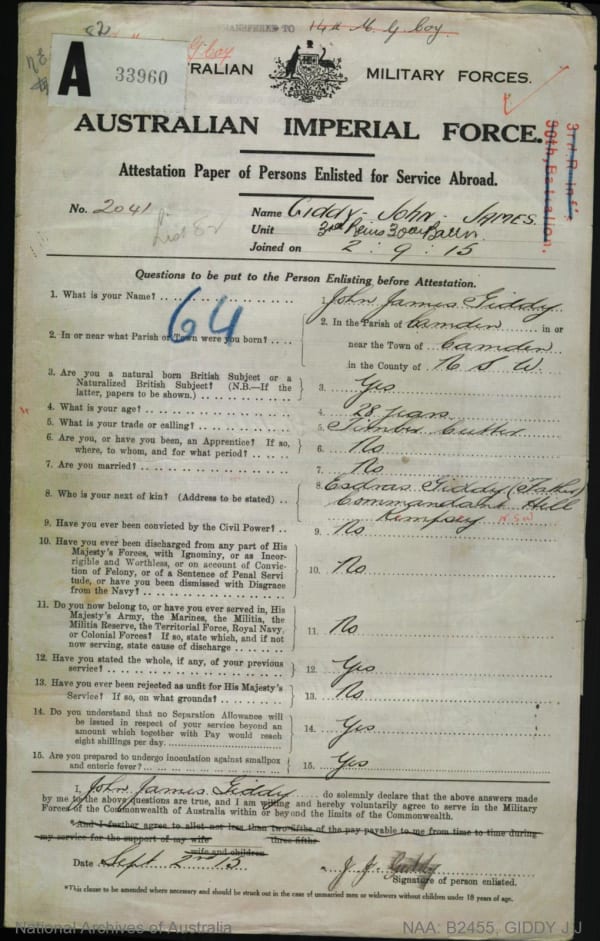 TRANSFERRED TO 14th M. G. Coy.
A 33960
G Coy
AUSTRALIAN MILITARY FORCES.
AUSTRALIAN IMPERIAL FORCE.
3rd Reinf's
30th, Battalion.
Attestation Paper of Persons Enlisted for Service Abroad.
No. 2041
Name Giddy - John - JAMES.
List 82
Unit 3rd Reins 30th Battn.
Joined on 2 : 9 : 15
Questions to be put to the Person Enlisting before Attestation.
1. What is your Name?
1. John James Giddy
64
2. In or near what Parish or Town were you born?
2. In the Parish of Camden in or
near the Town of Camden
in the County of N S W
3. Are you a natural born British Subject or a
Naturalized British Subject? (N.B.—If the
latter, papers to be shown.)
3. Yes
4. What is your age?
4. 28 years
5. What is your trade or calling?
5. Timber Cutter
6. Are you, or have you been, an Apprentice? If so,
where, to whom, and for what period?
6. No
7. Are you married?
7. No
8. Who is your next of kin? (Address to be stated)
8. Esdras Giddy (Father)
Commandant Hill
Kempsey N.S.W
9. Have you ever been convicted by the Civil Power?
9. No
10. Have you ever been discharged from any part of His
Majesty's Forces, with Ignominy, or as Incor-
rigible and Worthless, or on account of Convic-
tion of Felony, or of a Sentence of Penal Servi
tude, or have you been dismissed with Disgrace
from the Navy?
10. No
11. Do you now belong to, or have you ever served in, His
Majesty's Army, the Marines, the Militia, the
Militia Reserve, the Territorial Force, Royal Navy,
or Colonial Forces? If so, state which, and if not
now serving, state cause of discharge
11. No
12. Have you stated the whole, if any, of your previous
service?
12. Yes
13. Have you ever been rejected as unfit for His Majesty's
Service? If so, on what grounds?
13. No
14. Do you understand that no Separation Allowance will
be issued in respect of your service beyond an
amount which together with Pay would reach
eight shillings per day.
14. Yes
15. Are you prepared to undergo inoculation against smallpox
and enteric fever?
15. Yes
I, John James Giddy do solemnly declare that the above answers made
by me to the above questions are true, and I am willing and hereby voluntarily agree to serve in the Military
Forces of the Commonwealth of Australia within or beyond the limits of the Commonwealth.
*And I further agree to allot not less than two-fifths of the pay payable to me from time to time during
three-fifths
my service for the support of my wife
wife and children
Date Sept 2nd 15
J. J. Giddy
Signature of person enlisted.
*This clause to be amended where necessary and should be struck out in the case of unmarried men or widowers without children under 18 years of age.
National Archives of Australia
NAA: B2455, GIDDY J J